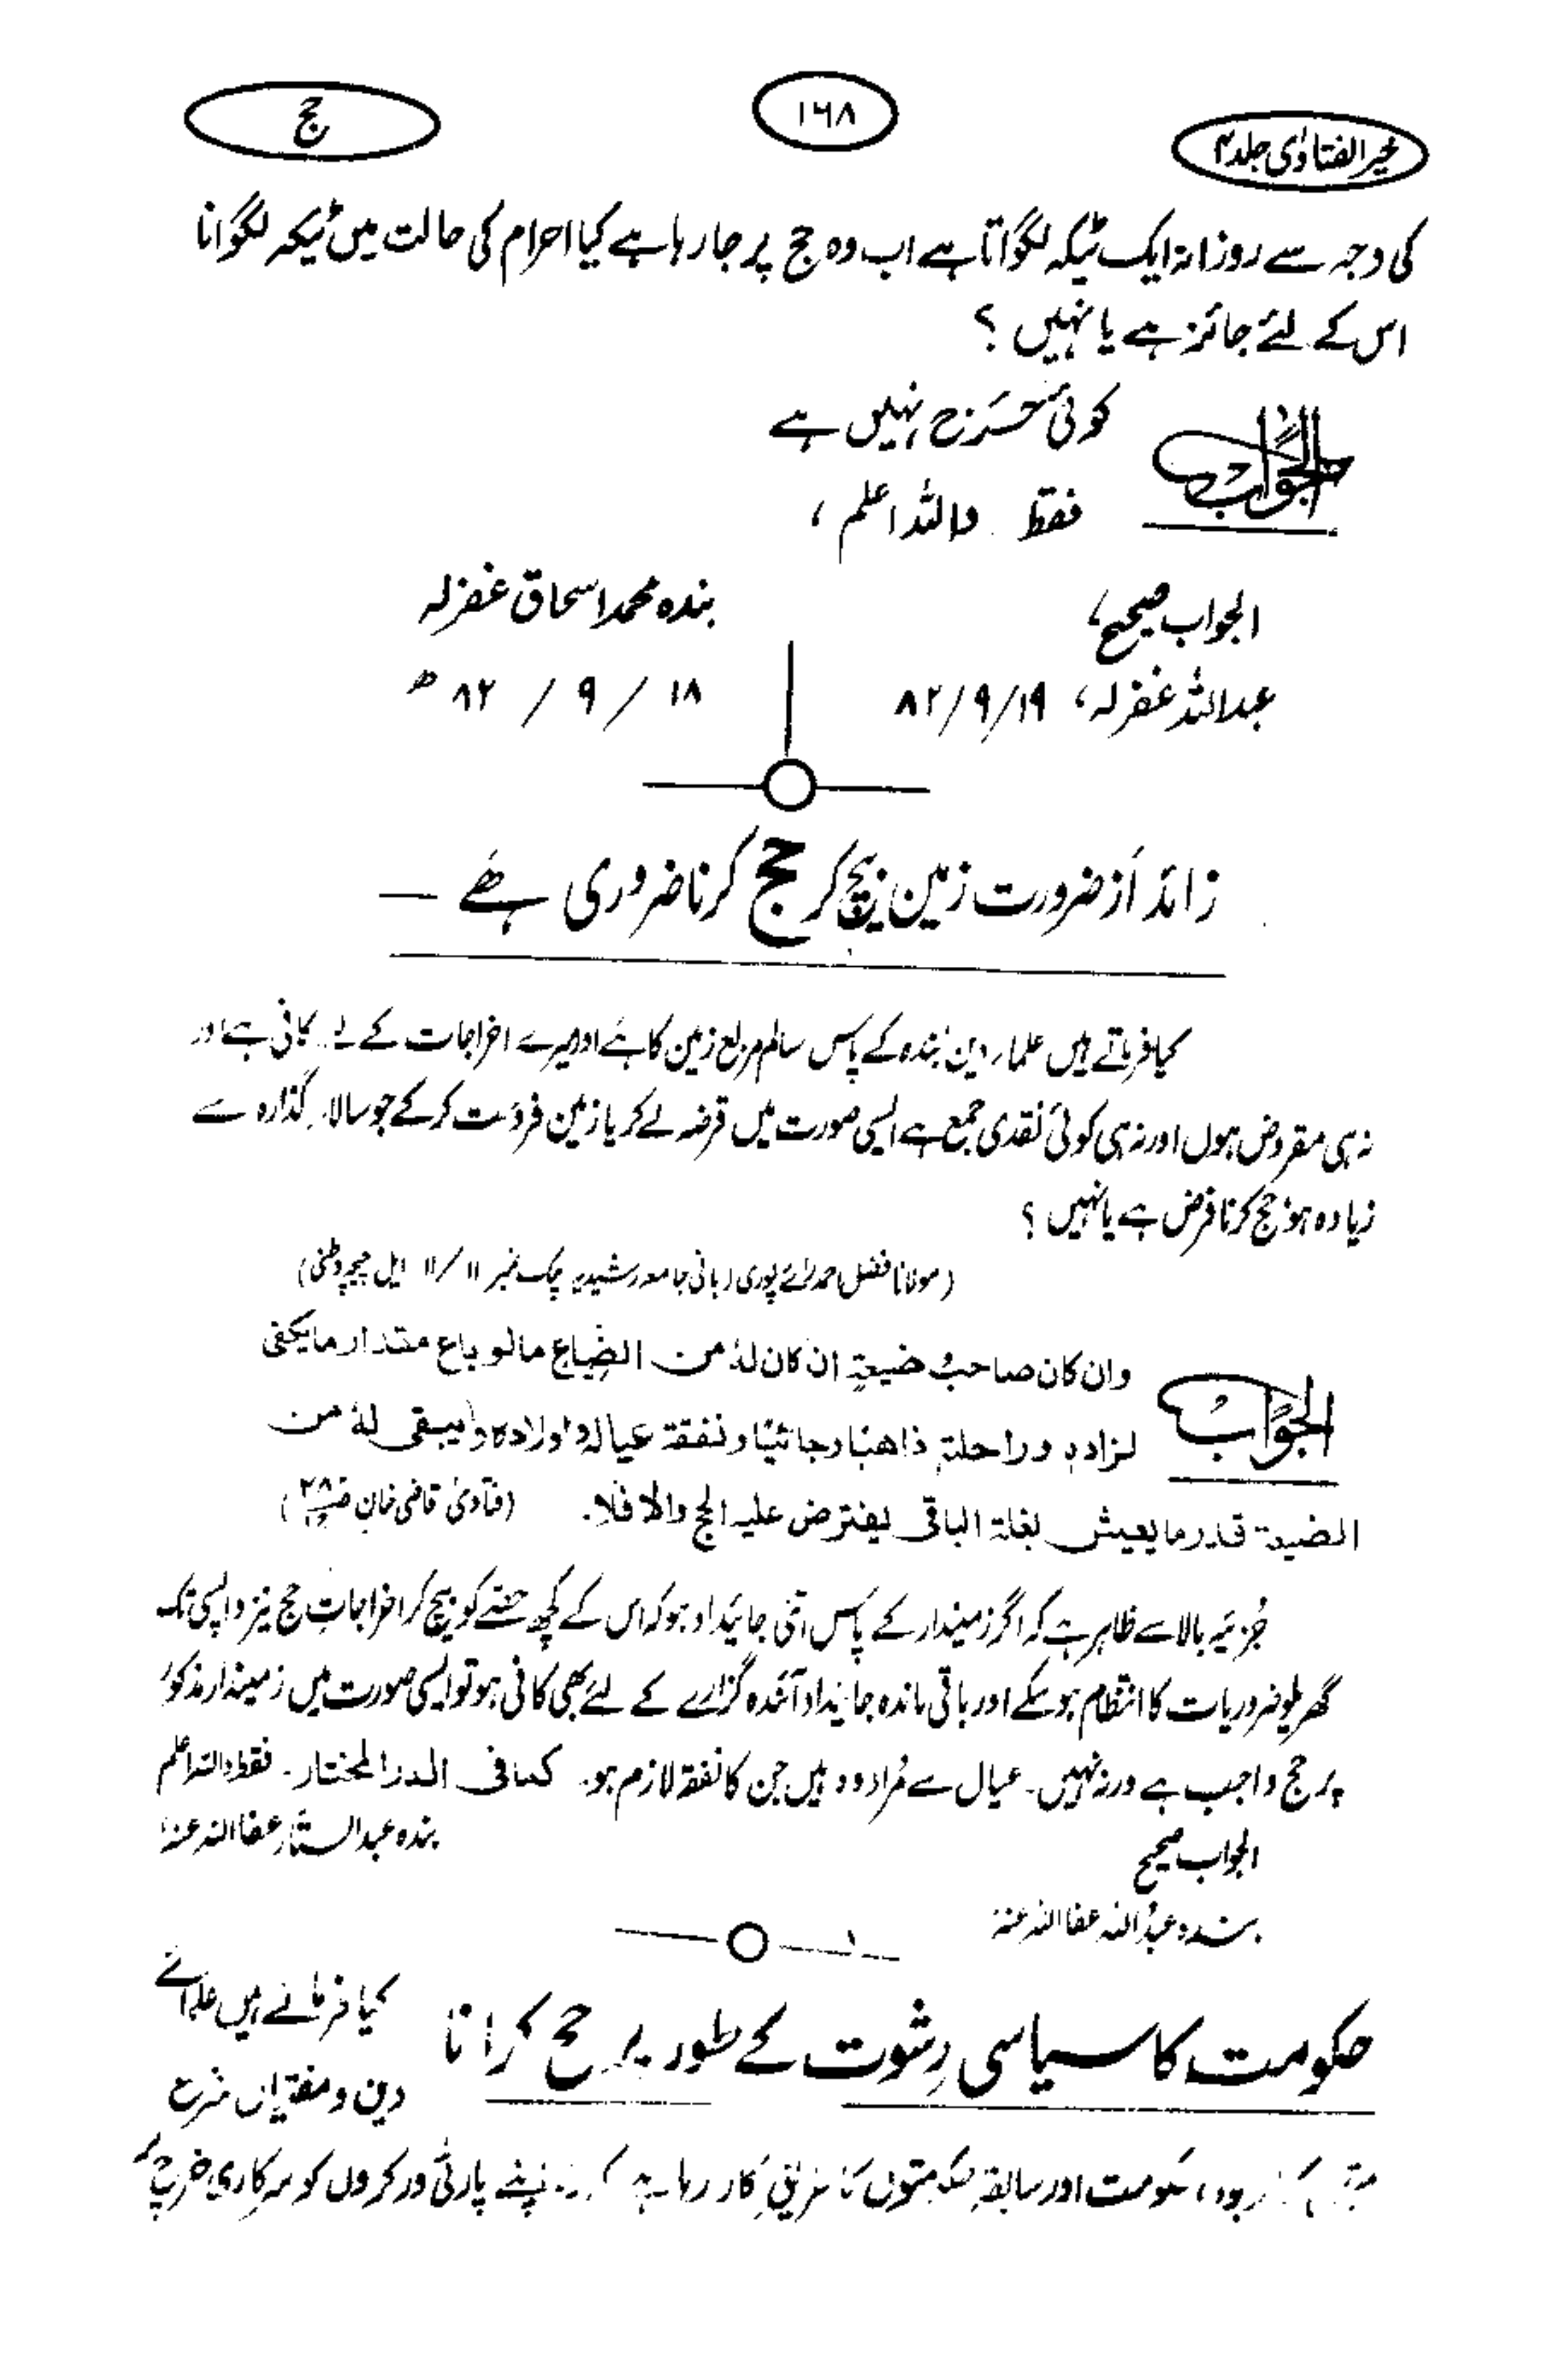 خیر الفتاوٰی جلد ۴
۱۶۸
حج
کی وجہ سے روزانہ ایک ٹیکہ لگواتا ہے اب وہ حج پر جا رہا ہے کیا احرام کی حالت میں ٹیکہ لگوانا
اس کے لئے جائز ہے یا نہیں ؟
الجواب
کوئی حَرَج نہیں ہے
فقط واللہ اعلم ،
الجواب صحیح،
بندہ محمد اسحاق غفرلہ
عبداللہ غفرلہ، ۱۹/۹/۸۲
۱۸ / ۹ / ۸۲ ھ
زائد از ضرورت زمین بیچ کر حج کرنا ضروری ہے —
کیا فرماتے ہیں علماء دین بندہ کے پاس سالم مربع زمین کا ہے اور میرے اخراجات کے لئے کافی ہے اور
نہ ہی مقروض ہوں اور نہ ہی کوئی نقدی جمع ہے ایسی صورت میں قرضہ لے کر یا زمین فروخت کر کے جو سالانہ گذارہ سے
زیادہ ہو حج کرنا فرض ہے یا نہیں ؟
(مولانا فضل احمد رائے پوری بانی جامعہ رشیدیہ چک نمبر ۱۱/۱۱ ایل چیچہ وطنی)
الجواب
وان کان صاحب ضیعةٍ ان کان لهٗ من الضِیاعِ مالو باع مقدار ما یکفی
لزادهٖ وراحلتهٖ ذاهبًا وجائیًا ونفقة عیالهٖ واولادهٖ ویبقی لهٗ من
الضیعة قدر ما یعیش بغلة الباقی یفترض علیه الحج والا فلا۔ (فتاویٰ قاضی خان)
جُزئیہ بالا سے ظاہر ہے کہ اگر زمیندار کے پاس اتنی جائیداد ہو کہ اس کے کچھ حصّے کو بیچ کر اخراجاتِ حج نیز واپسی تک
گھریلو ضروریات کا انتظام ہو سکے اور باقی ماندہ جائیداد آئندہ گزارے کے لئے بھی کافی ہو تو ایسی صورت میں زمیندار مذکور
پر حج واجب ہے ورنہ نہیں۔ عیال سے مُراد وہ ہیں جن کا نفقہ لازم ہو۔ کما فی الدر المختار۔ فقط واللہ اعلم
الجواب صحیح
بندہ عبد الستار عفا اللہ عنہ
بندہ عبداللہ عفا اللہ عنہ
حکومت کا سیاسی رِشوت کے طور پر حج کرانا
کیا فرماتے ہیں علمائے
دین و مفتیان شرع
حکومت اور سابقہ حکومتوں کا طریق کار رہا ہے کہ اپنے پارٹی ورکروں کو سرکاری خرچ